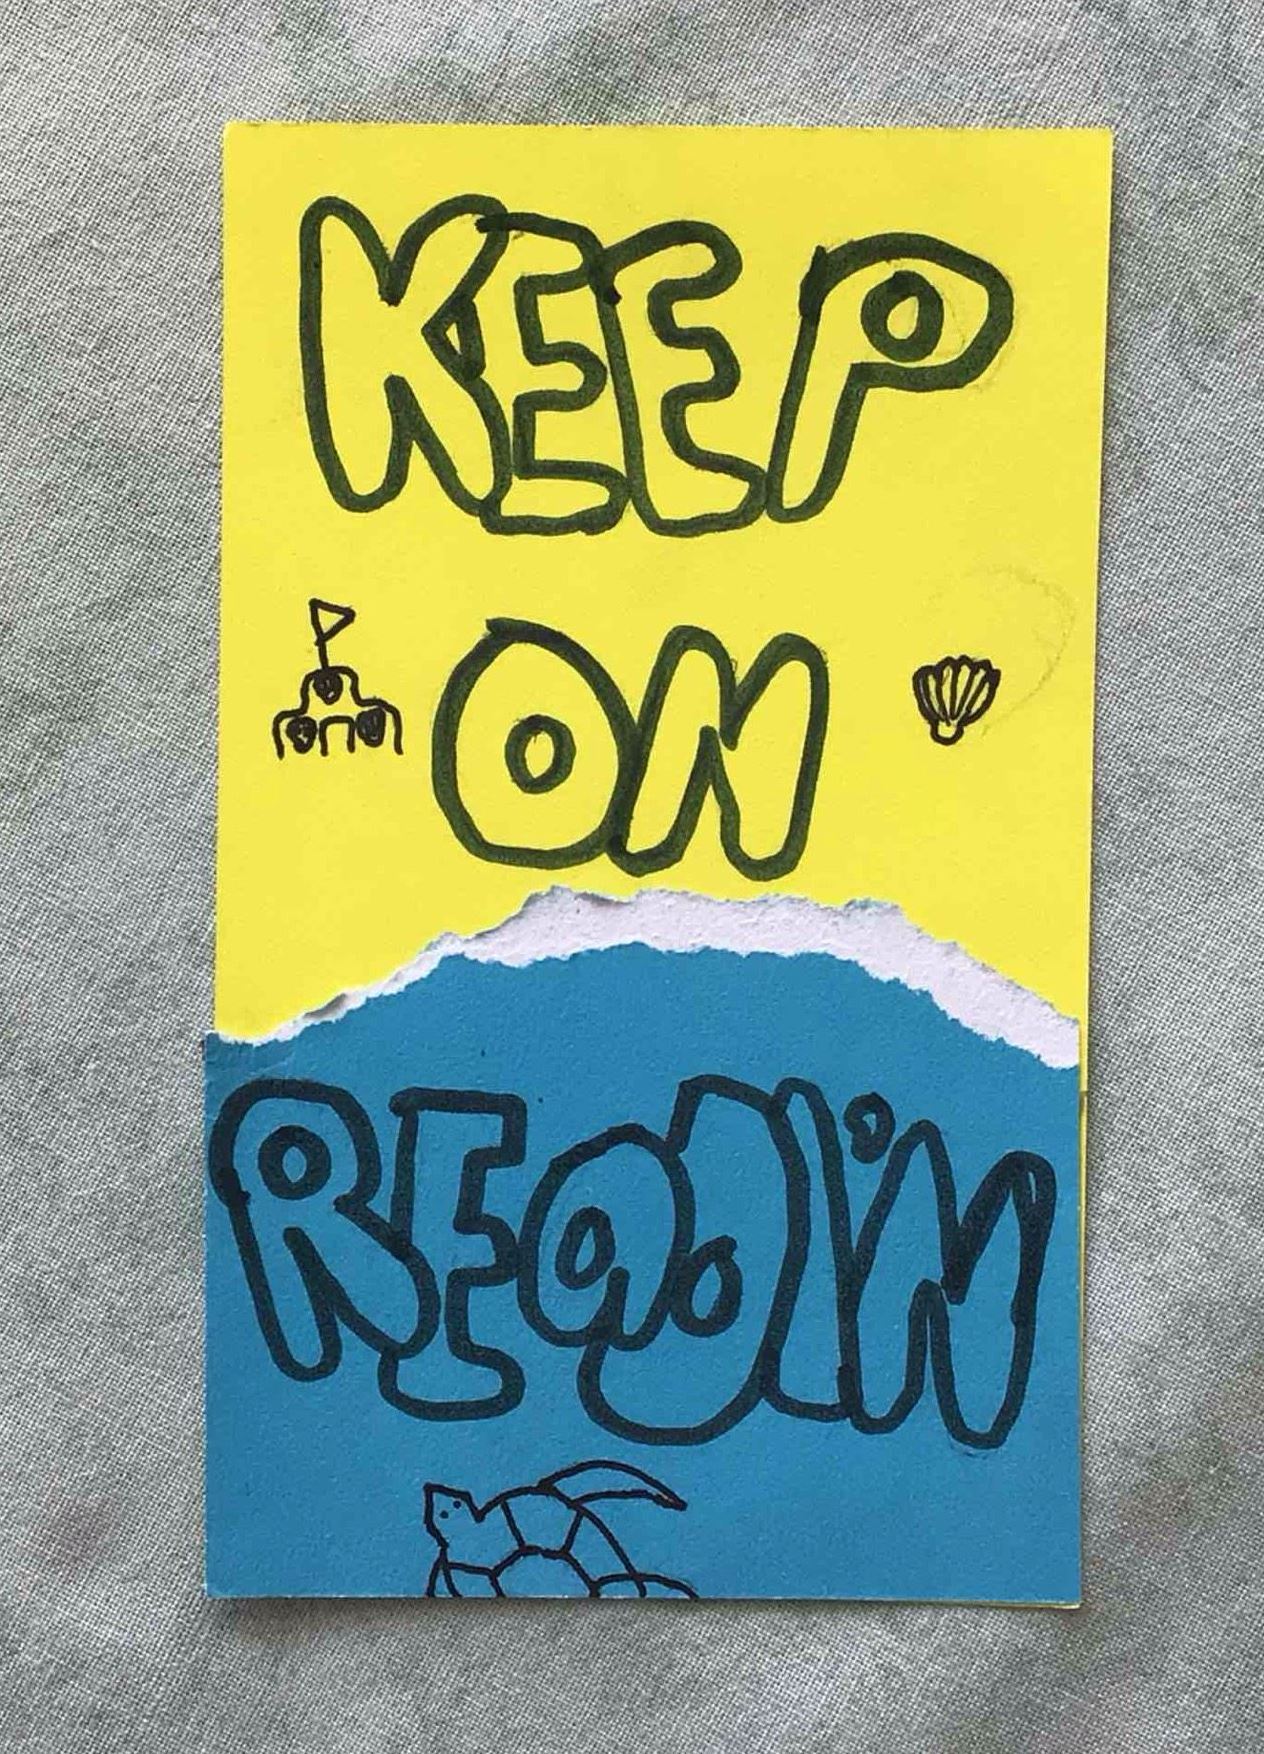 KEEP
ON
READI'N